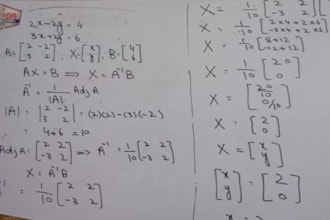 2x-2y = 4
3x+2y = 6
A = [2 -2 3 2], X = [x y], B = [4 6]
AX = B ⇒ X = A⁻¹B
A⁻¹ = 1/|A| Adj A
|A| = |2 -2 3 2| = (2)(2) - 3)(-2)
4+6 = 10
Adj A = [2 2 -3 2] ⇒ A⁻¹ = 1/10 [2 2 -3 2]
X = A⁻¹B
= 1/10 [2 2 -3 2]
X = 1/10 [2 2
X = 1/10 [2×4 + 2×6 -3×4 + 2×6]
X = 1/10 [8+12 -12+12]
X = 1/10 [20 0]
X = [20/10 0/10]
X = [2 0]
X = [x y]
[x y] = [2 0]